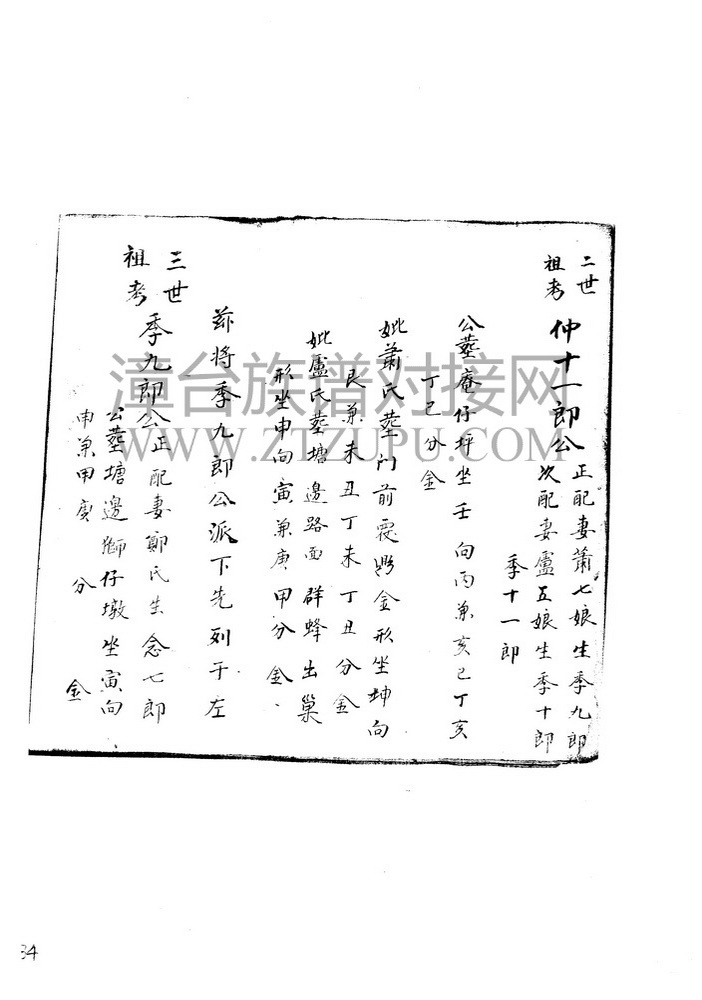 二世
祖考
仲十一郎公
正配妻蕭七娘生季九郎
次配妻盧五娘生季十郎
季十一郎
公塟庵仔坪坐壬向丙兼亥巳丁亥
丁巳分金
妣蕭氏塟門前覆鼎金形坐坤向
艮兼未丑丁未丁丑分金
妣盧氏塟塘邊路面群蜂出巢
形坐申向寅兼庚甲分金
茲將季九郎公派下先列于左
三世
祖考
季九郎公正配妻鄭氏生念七郎
公塟塘邊獅仔墩坐寅向
申兼甲庚分金
漳台族谱对接网
WWW.ZTZUPU.COM
34